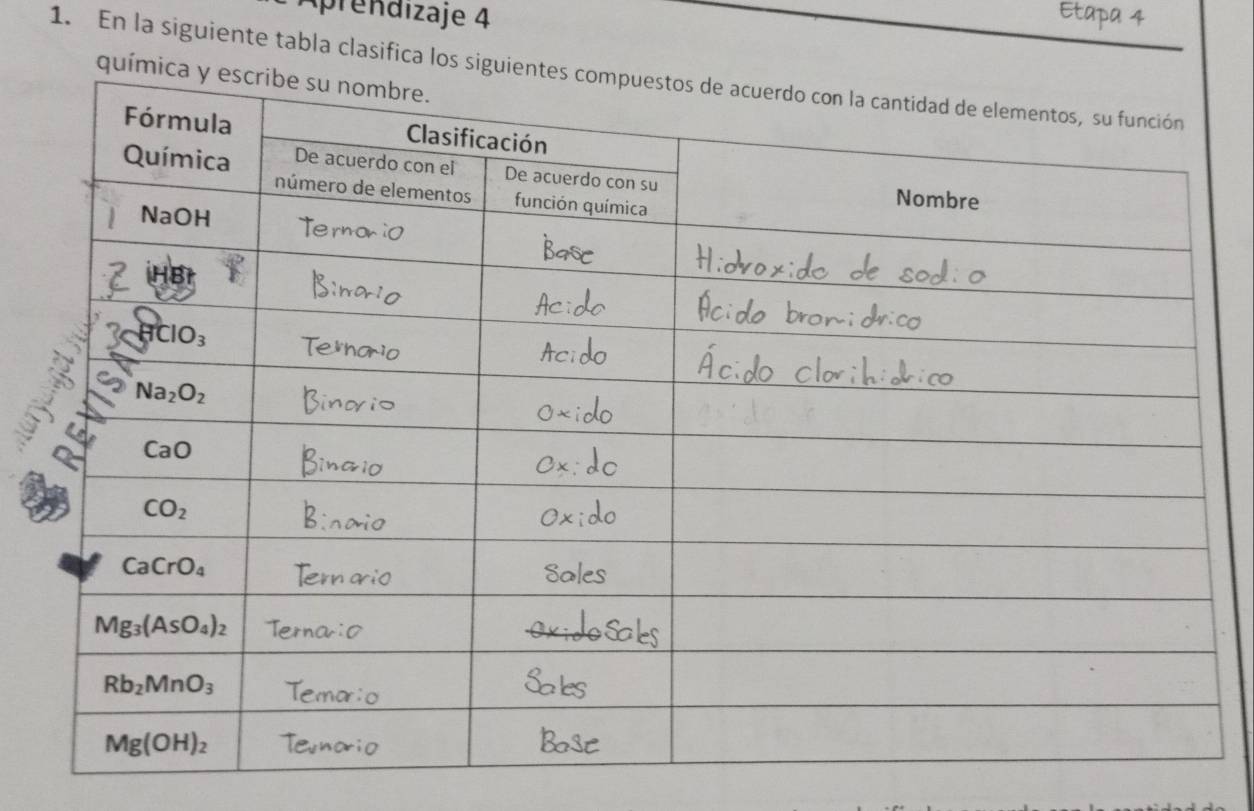 Aprendizaje 4
Etapa 4
1. En la siguiente tabla clasifica los siguientes compuestos de acuerdo con la cantidad de elementos, su función
química y escribe su nombre.
Fórmula Química
Clasificación
De acuerdo con el número de elementos
De acuerdo con su función química
Nombre
1 NaOH Ternario Base Hidroxido de sodio
2 HBr Binario Acido Ácido bromidrico
3 HClO₃ Ternario Acido Ácido clorihidrico
Na₂O₂ Binario Oxido
CaO Binario Oxido
CO₂ Binario Oxido
CaCrO₄ Ternario Sales
Mg₃(AsO₄)₂ Ternario oxido Sales
Rb₂MnO₃ Ternario Sales
Mg(OH)₂ Ternario Base
REVISADO